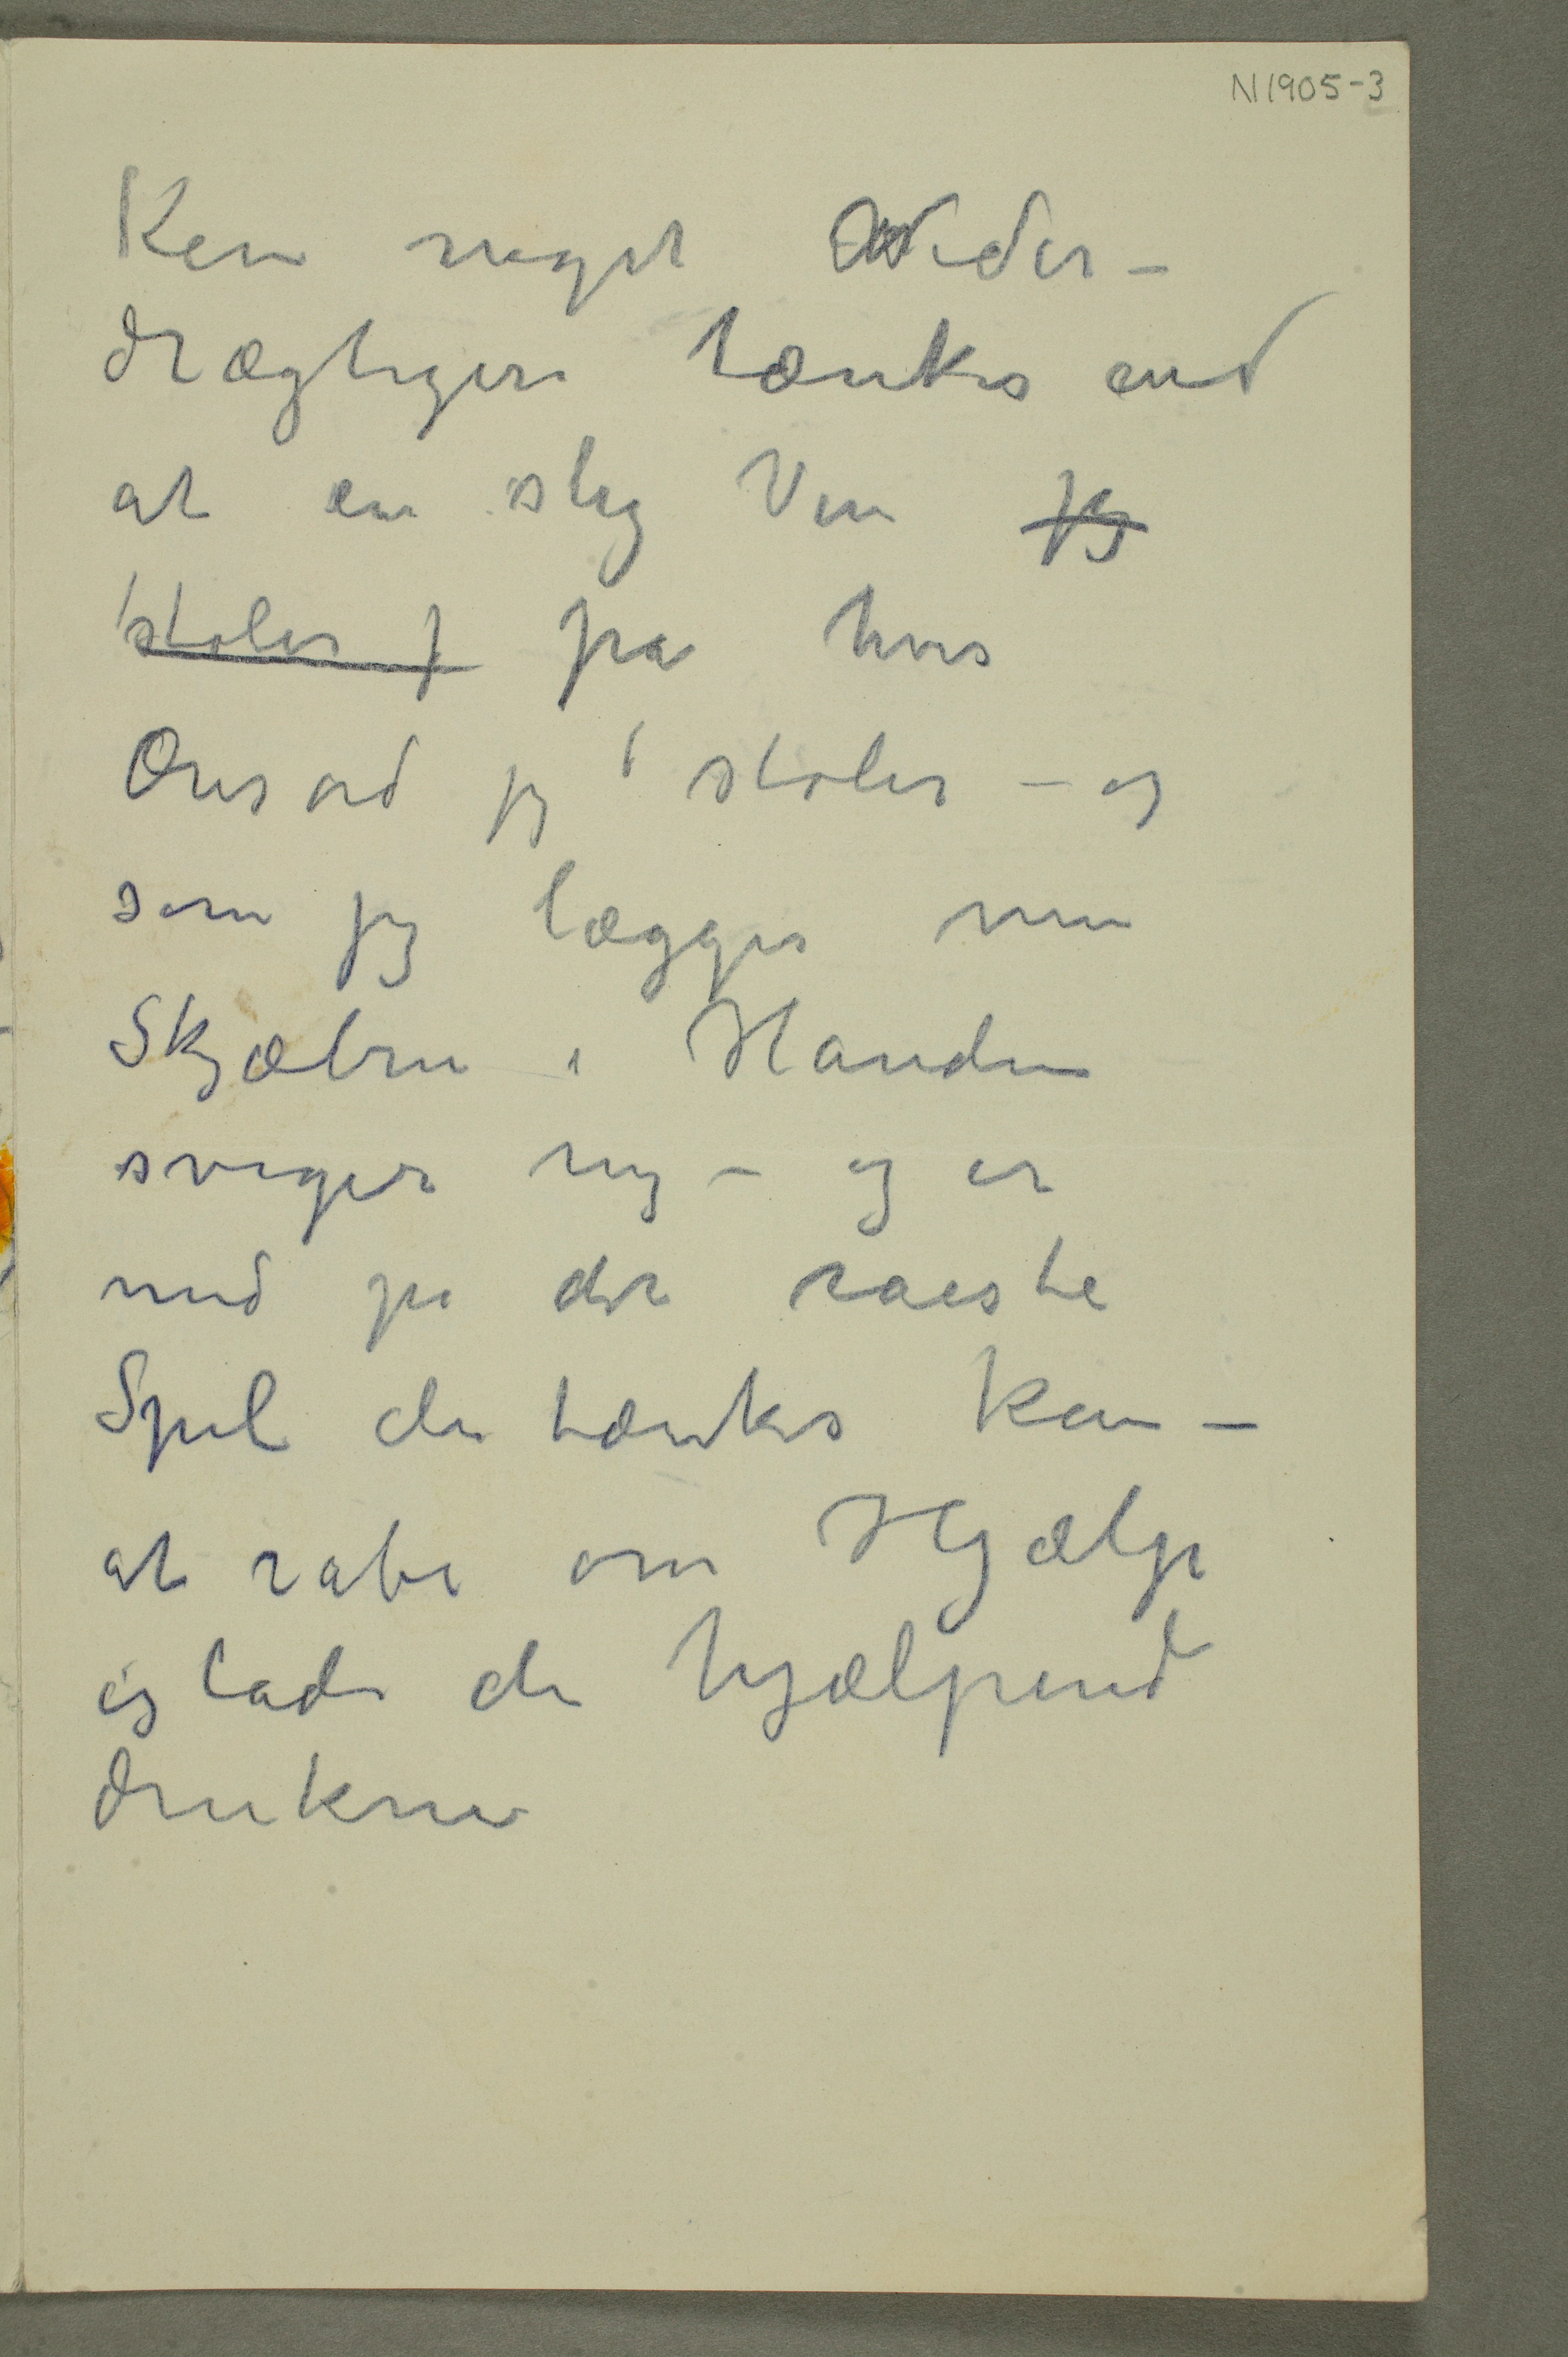 N1905-3
Kan noget Neder-
drægtigere tænkes end
at en slig Ven jeg
stoler p på hvis
Æresord jeg stoler – og
som jeg lægger min
Skjæbne i Handen
sviger mig – og er
med på det raaeste
Spil der tænkes kan –
at råbe om Hjælp
og lade den hjælpende
drukne